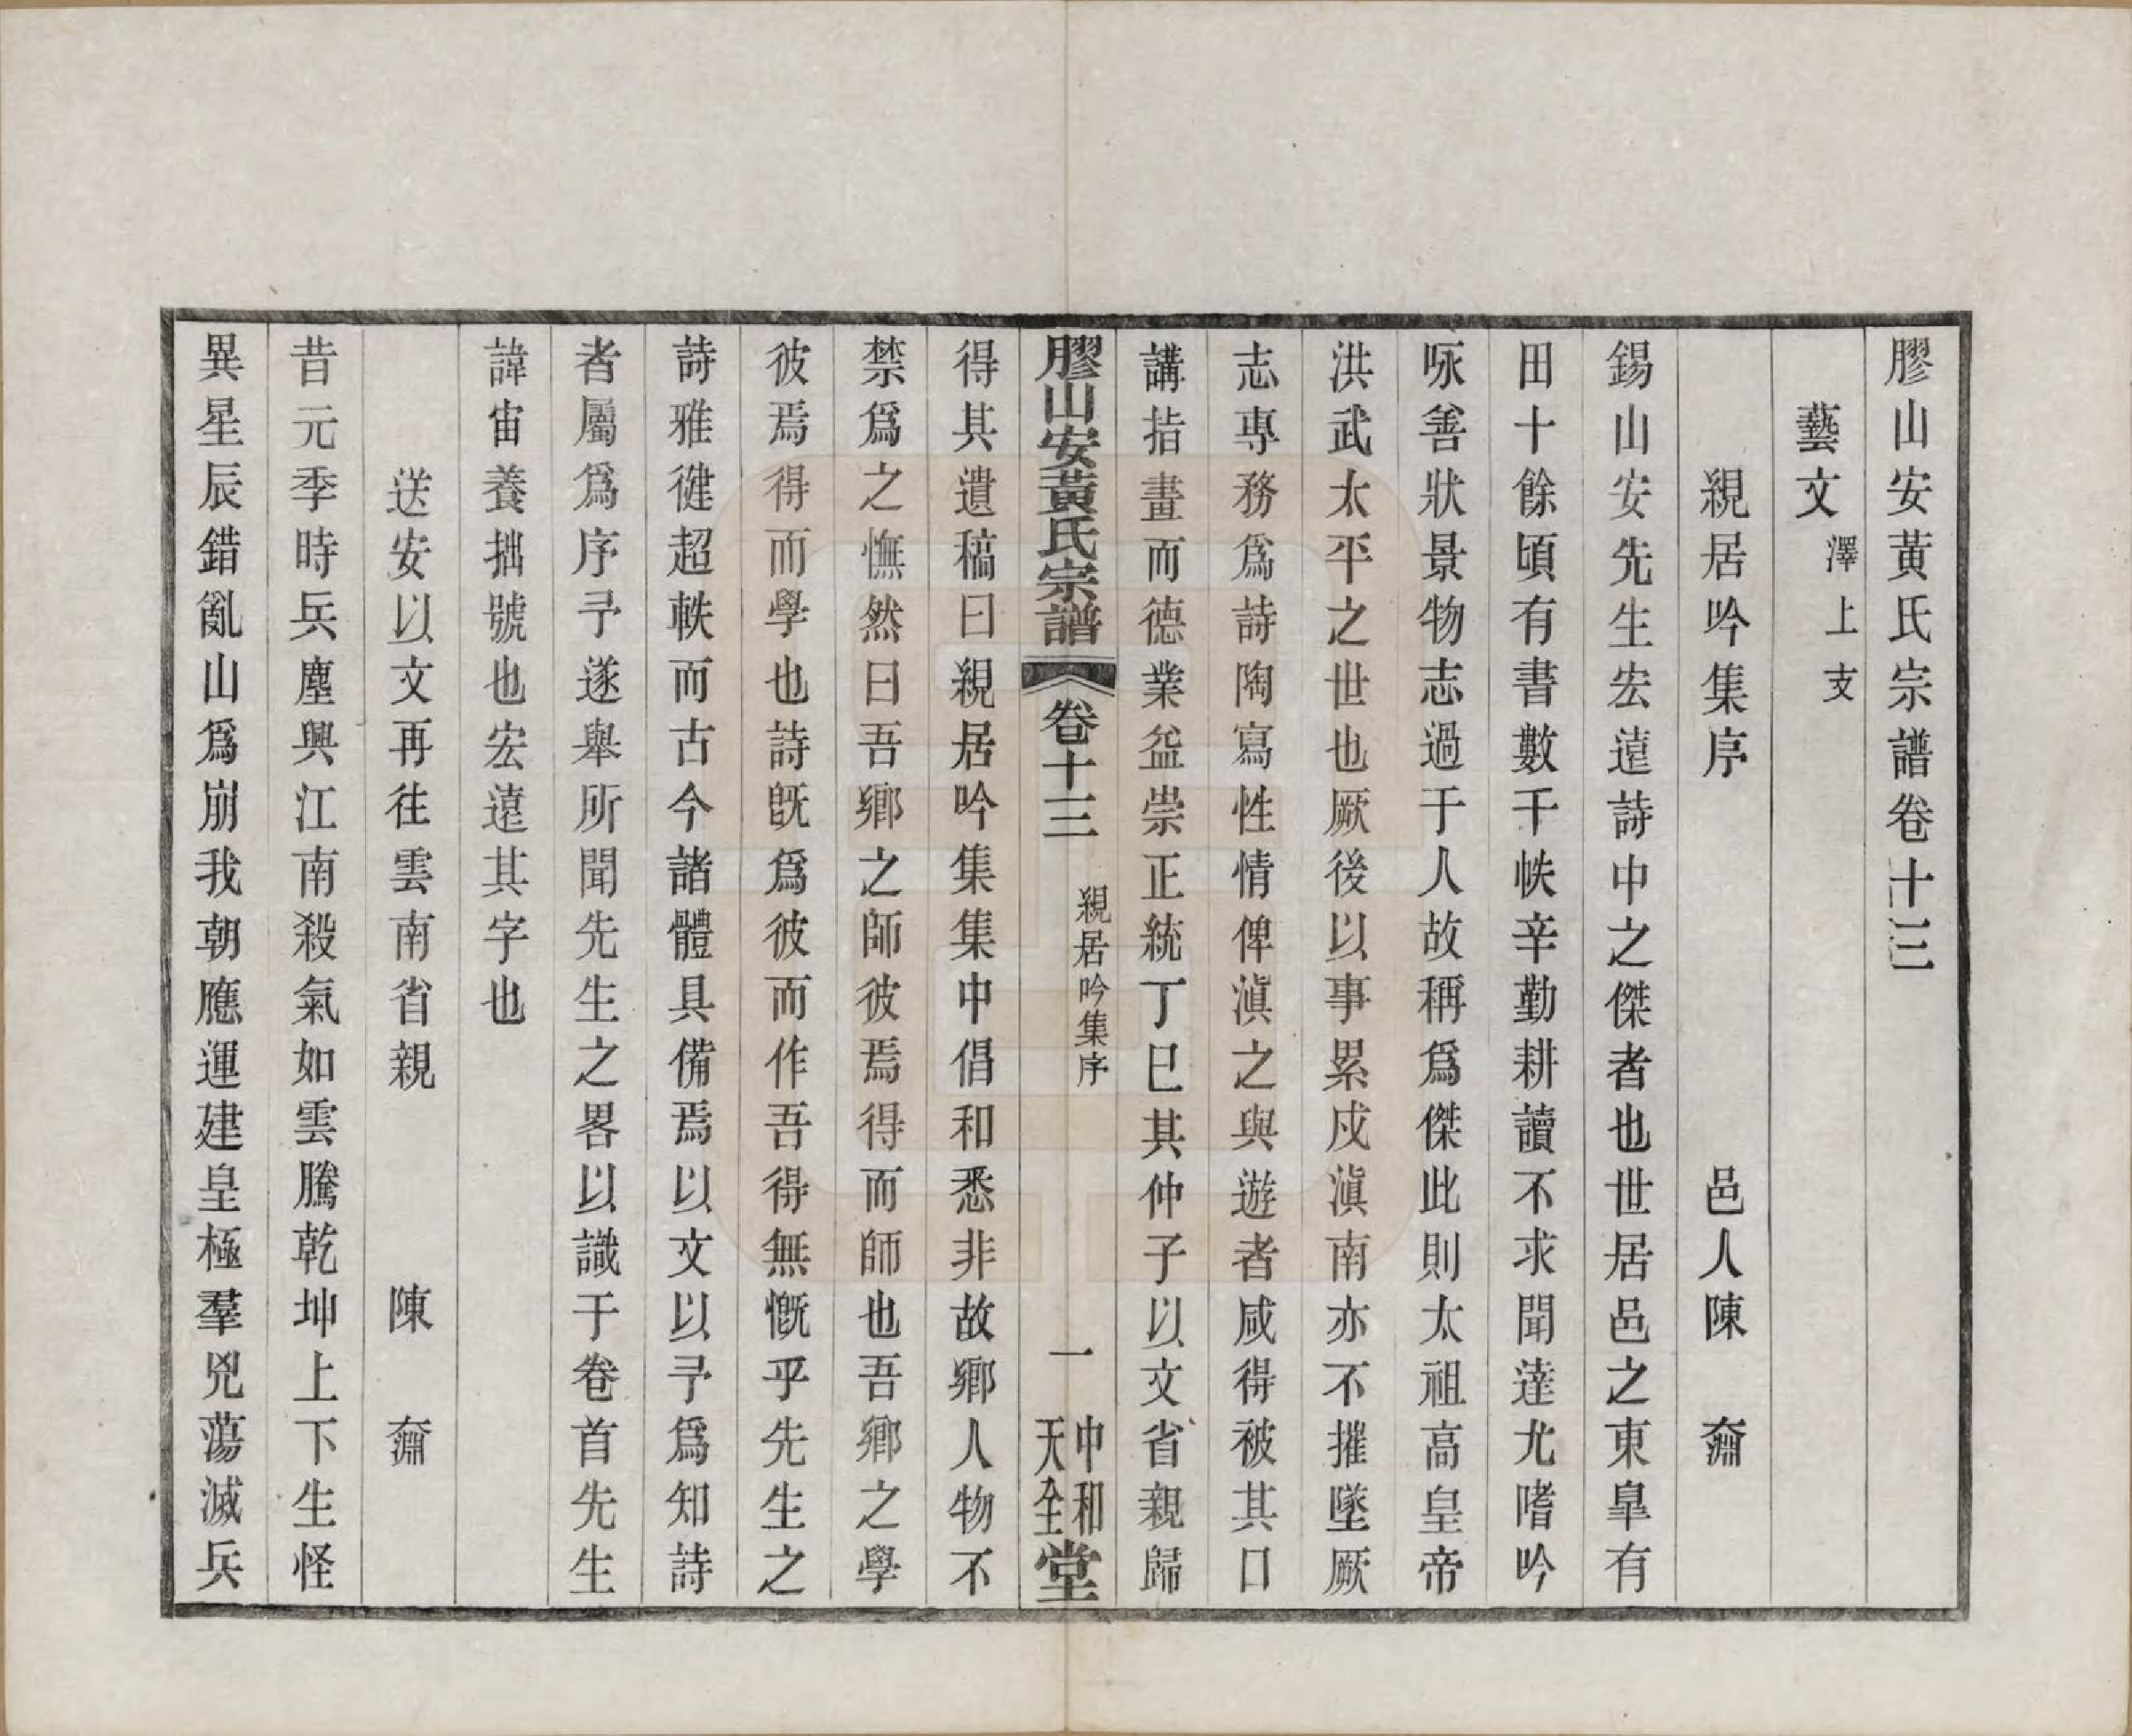 膠山安黃氏宗譜卷十三
藝文 澤上支
親居吟集序 邑人陳 奫
錫山安先生宏遠詩中之傑者也世居邑之東臯有
田十餘頃有書數千帙辛勤耕讀不求聞達尤嗜吟
咏善狀景物志過于人故稱爲傑此則太祖高皇帝
洪武太平之世也厥後以事累戍滇南亦不摧墜厥
志專務爲詩陶寫性情俾滇之與遊者咸得被其口
講指畫而德業益崇正統丁巳其仲子以文省親歸
膠山安黃氏宗譜 卷十三 親居吟集序 一 中和 天全 堂
得其遺稿曰親居吟集集中倡和悉非故鄉人物不
禁爲之憮然曰吾鄉之師彼焉得而師也吾鄉之學
彼焉得而學也詩旣爲彼而作吾得無慨乎先生之
詩雅健超軼而古今諸體具備焉以文以予爲知詩
者屬爲序予遂舉所聞先生之畧以識于卷首先生
諱宙養拙號也宏遠其字也
送安以文再往雲南省親 陳 奫
昔元季時兵塵興江南殺氣如雲騰乾坤上下生怪
異星辰錯亂山爲崩我朝應運建皇極羣兇蕩滅兵